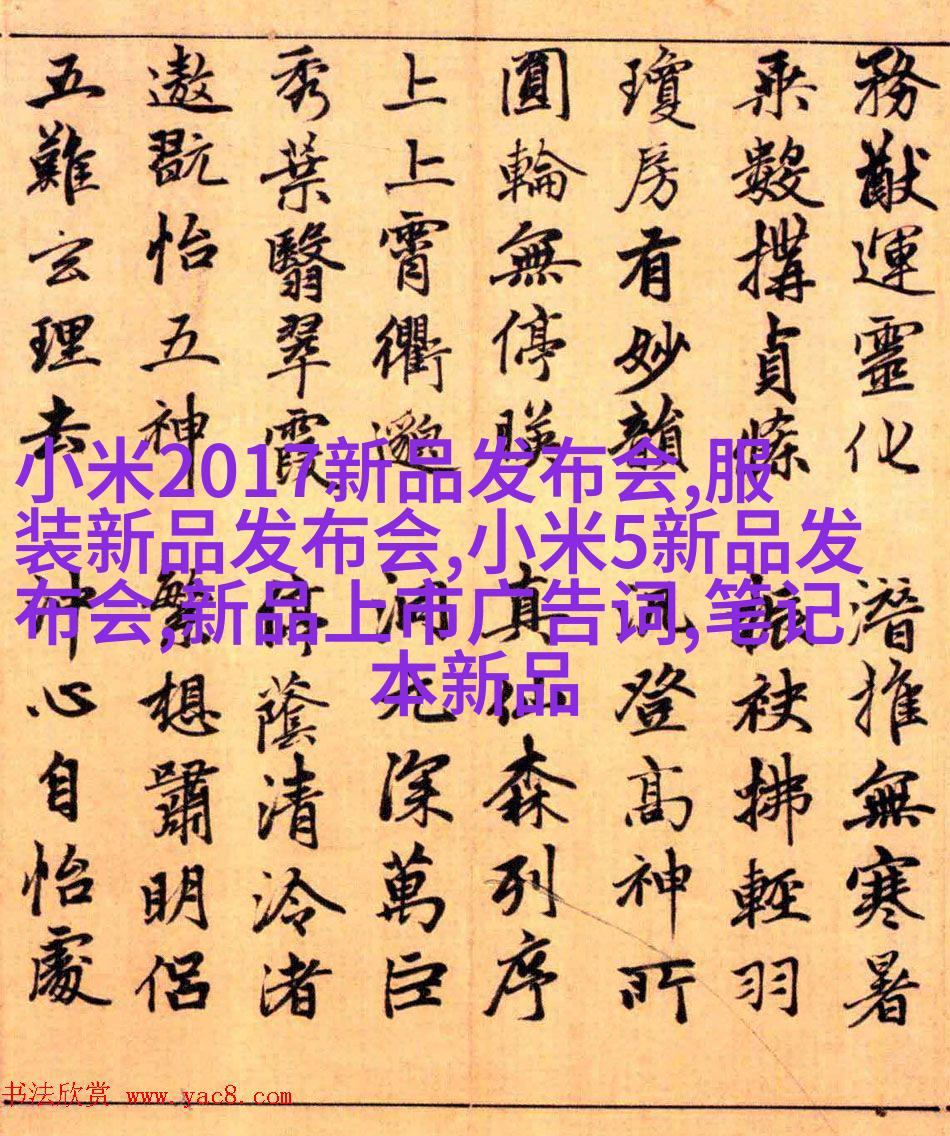 務猷運靈化 潛推無寒暑
乘數搆貞條 振袂拂輕羽
瓊房有妙韻 登高神所
圓輪無停暎 真仙森列序
上上霄衢邈 洞元深萬巨
秀葉翳翠霞 停蔭清泠渚
遨翫怡五神 繁想嘯明侶
五難玄理去 沖心自怡處
小米2017新品发布会,服
装新品发布会,小米5新品发
布会,新品上市广告词,笔记
本新品
书法欣赏 www.yac8.com